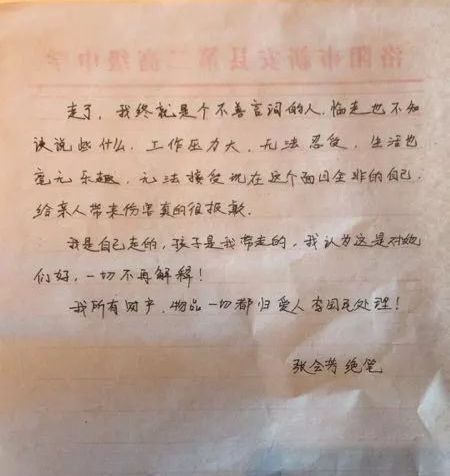 洛阳市新安县第二高级中学
走了，我终就是个不善言词的人，临走也不知
该说些什么。工作压力大，无法忍受，生活也
毫无乐趣，无法接受现在这个面目全非的自己，
给亲人带来伤害真的很抱歉。
我是自己走的，孩子是我带走的，我认为这是对她
们好，一切不再解释！
我所有财产、物品一切都归爱人李国无处理！
张会芳绝笔